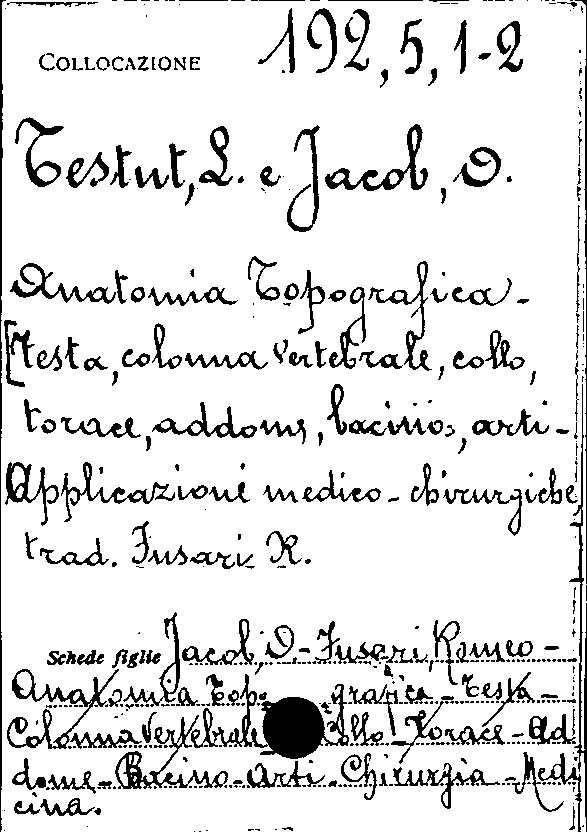 COLLOCAZIONE 192, 5, 1-2
Testut, L. e Jacob, O.
Anatomia Topografica -
[Testa, colonna vertebrale, collo,
torace, addome, bacino, arti -
Applicazioni medico - chirurgiche,
trad. Fusari R.
Schede figlie Jacob, O. - Fusari, Romeo -
Anatomia Topografica - Testa -
Colonna Vertebrale Collo - Torace - Ad
dome - Bacino - Arti - Chirurgia - Medi
cina.